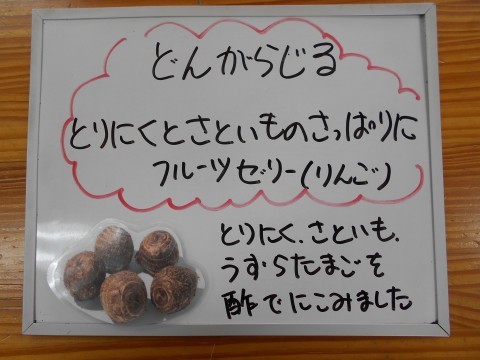 どんがらじる
とりにくとさといものさっぱりに
フルーツゼリー(りんご)
とりにく、さといも、
うずらたまごを
酢でにこみました